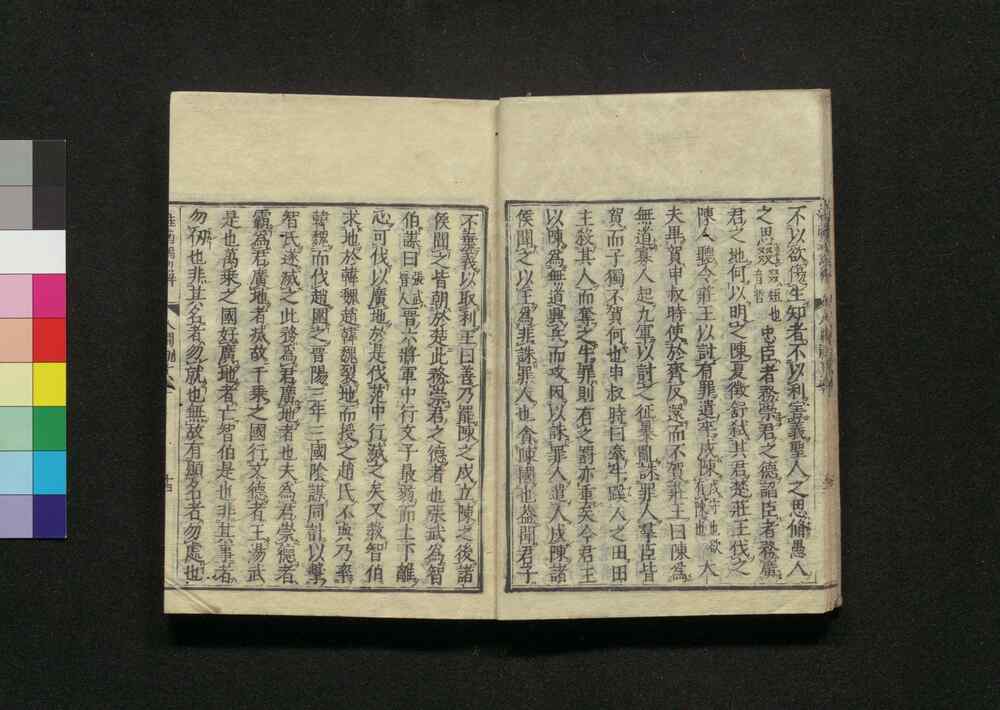 不以欲傷生知者不以利害義聖人之思脩愚人
之思叕叕短也忠臣者務崇君之德諂臣者務廣
君之地何以明之陳夏徵舒弒其君楚莊王伐之
陳人聽令莊王以討有罪遣卒戍陳戍守也欲大
夫畢賀申叔時使於齊反還而不賀莊王曰陳爲
無道寡人起九軍以討之征暴亂誅罪人羣臣皆
賀而子獨不賀何也申叔時曰牽牛蹊人之田田
主殺其人而奪之牛罪則有之罰亦重矣今君王
以陳爲無道興兵而攻因以誅罪人遣人戍陳諸
侯聞之以王爲非誅罪人也貪陳國也蓋聞君子
不棄義以取利王曰善乃罷陳之戍立陳之後諸
侯聞之皆朝於楚此務崇君之德者也張武爲智
伯謀曰張武晉人晉六將軍中行文子最弱而上下離
心可伐以廣地於是伐范中行滅之矣又教智伯
求地於韓魏趙韓魏裂地而授之趙氏不與乃率
韓魏而伐趙圍之晉陽三年三國陰謀同計以擊
智氏遂滅之此務爲君廣地者也夫爲君崇德者
霸爲君廣地者滅故千乘之國行文德者王湯武
是也萬乘之國好廣地者亡智伯是也非其事者
勿仞也非其名者勿就也無故有顯名者勿處也
人間訓
十四